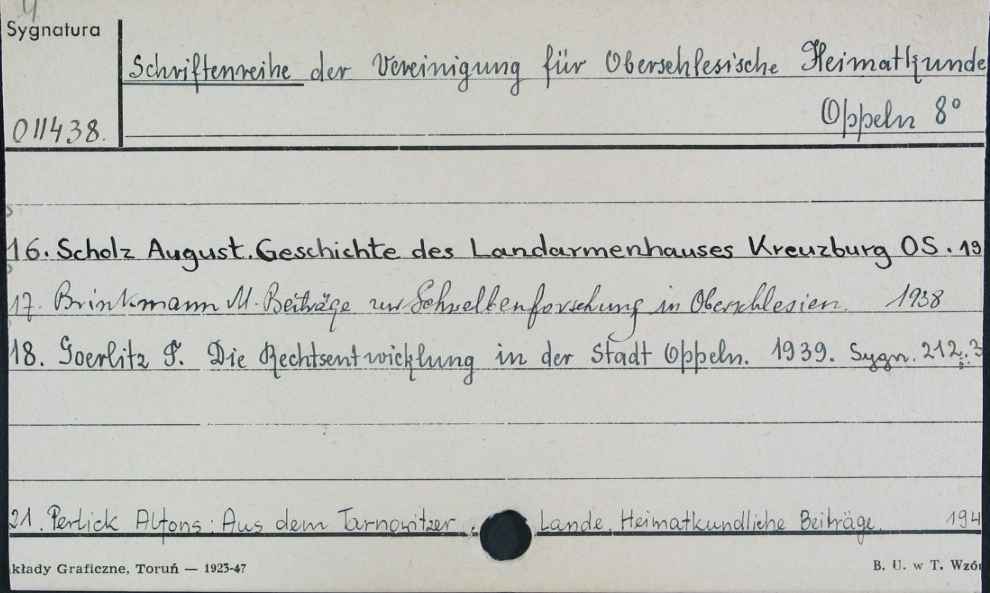 Sygnatura
Schriftenreihe der Vereinigung für Oberschlesische Heimatkunde
Oppeln 8°
011438.
16. Scholz August. Geschichte des Landarmenhauses Kreuzburg OS. 19
17. Brinkmann M. Beiträge zur Schwellenforschung in Oberschlesien. 1938
18. Goerlitz F. Die Rechtsentwicklung in der Stadt Oppeln. 1939. Sygn. 212.3
21. Perlick Alfons: Aus dem Tarnowitzer Lande. Heimatkundliche Beiträge. 194
kłady Graficzne, Toruń — 1923-47
B. U. w T. Wzór